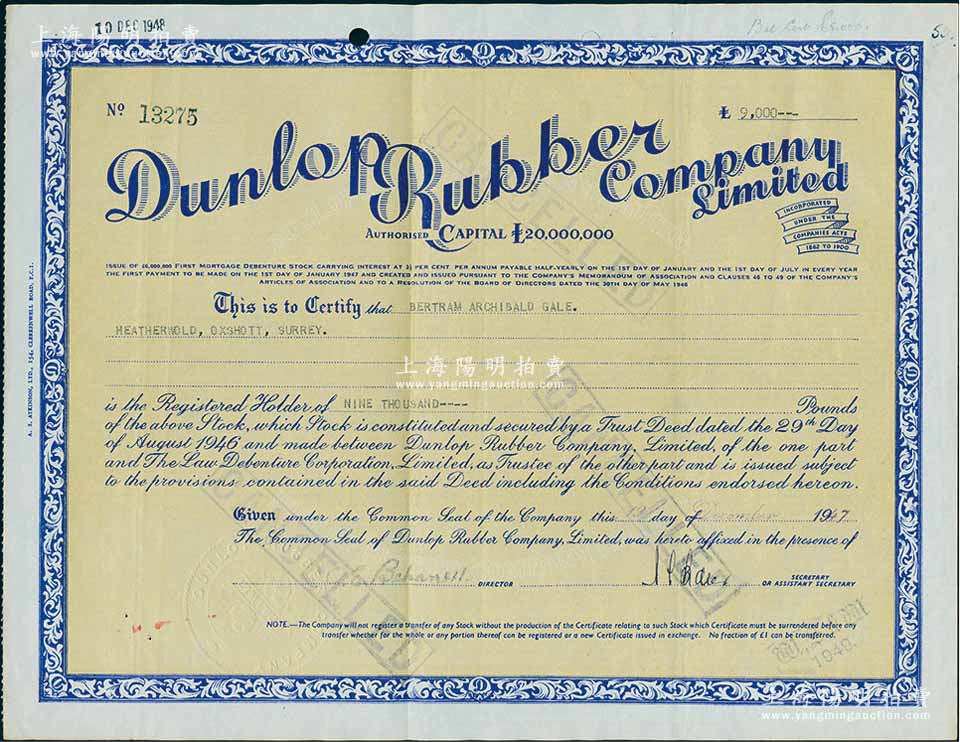 10 DEC 1948
上海陽明拍賣
www.yangmingauction.com
Nº 13275
£ 9,000---
Dunlop Rubber Company Limited
AUTHORISED CAPITAL £20,000,000
INCORPORATED
UNDER THE
COMPANIES ACTS
1862 TO 1900
ISSUE OF £6,000,000 FIRST MORTGAGE DEBENTURE STOCK CARRYING INTEREST AT 3½ PER CENT. PER ANNUM PAYABLE HALF-YEARLY ON THE 1ST DAY OF JANUARY AND THE 1ST DAY OF JULY IN EVERY YEAR
THE FIRST PAYMENT TO BE MADE ON THE 1ST DAY OF JANUARY 1947 AND CREATED AND ISSUED PURSUANT TO THE COMPANY'S MEMORANDUM OF ASSOCIATION AND CLAUSES 46 TO 49 OF THE COMPANY'S
ARTICLES OF ASSOCIATION AND TO A RESOLUTION OF THE BOARD OF DIRECTORS DATED THE 30TH DAY OF MAY 1946
This is to Certify that BERTRAM ARCHIBALD GALE.
HEATHERWOLD, OXSHOTT, SURREY.
上海陽明拍賣
www.yangmingauction.com
is the Registered Holder of NINE THOUSAND---- Pounds
of the above Stock, which Stock is constituted and secured by a Trust Deed dated the 29th Day
of August 1946 and made between Dunlop Rubber Company, Limited, of the one part
and The Law Debenture Corporation, Limited, as Trustee of the other part and is issued subject
to the provisions contained in the said Deed including the Conditions endorsed hereon.
Given under the Common Seal of the Company this day of December 1947
The Common Seal of Dunlop Rubber Company, Limited, was hereto affixed in the presence of
DIRECTOR
SECRETARY
OR ASSISTANT SECRETARY
NOTE.—The Company will not register a transfer of any Stock without the production of the Certificate relating to such Stock which Certificate must be surrendered before any
transfer whether for the whole or any portion thereof can be registered or a new Certificate issued in exchange. No fraction of £1 can be transferred.
CANCELLED
CANCELLED
CANCELLED
A. S. ATKINSON, LTD., 154, CLERKENWELL ROAD, E.C.1.
上海陽明拍賣
www.yangmingauction.com